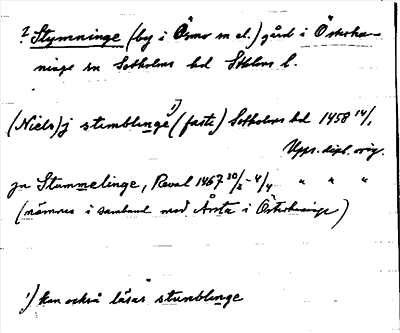 ? Stymninge (by i Ösmo m el.) gård i Österha-
ninge sn Sotholms hd Sthlms l.
(Niels) j stimblinge 1) (faste) Sotholms hd 1458 14/1
Upps. dipl. orig.
jn Stummelinge, Reval 1467 30/3 - 4/4 " " "
(nämnes i samband med Årsta i Österhaninge)
1) kan också läsas stunblinge